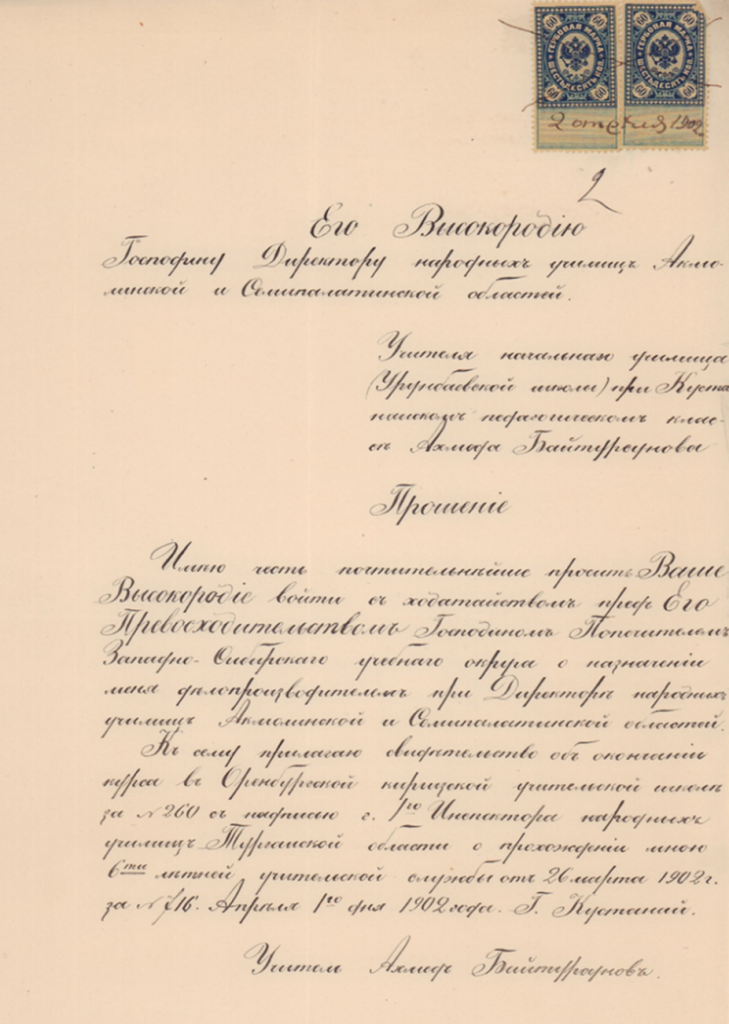 60 60 60 60
ГЕРБОВАЯ МАРКА ГЕРБОВАЯ МАРКА
ШЕСТЬДЕСЯТЪ КОП. ШЕСТЬДЕСЯТЪ КОП.
60 60 60 60
2 1902
2
Его Высокородію
Господину Директору народныхъ училищъ Акмо-
линской и Семипалатинской областей.
Учителя начальнаго училища
(Урунбаевской школы) при Куста
найскомъ педагогическомъ клас-
сѣ Ахмеда Байтурсунова
Прошеніе
Имѣю честь почтительнѣйше просить Ваше
Высокородіе войти съ ходатайствомъ предъ Его
Превосходительствомъ Господиномъ Попечителемъ
Западно-Сибирскаго учебнаго округа о назначеніи
меня дѣлопроизводителемъ при Директорѣ народныхъ
училищъ Акмолинской и Семипалатинской областей.
Къ сему прилагаю свидѣтельство объ окончаніи
курса въ Оренбургской киргизской учительской школѣ
за № 260 съ надписью г. 1го Инспектора народныхъ
училищъ Тургайской области о прохожденіи мною
6ти лѣтней учительской службы отъ 26 марта 1902 г.
за № 716. Апрѣля 1го дня 1902 года. Г. Кустанай.
Учитель Ахмедъ Байтурсуновъ.